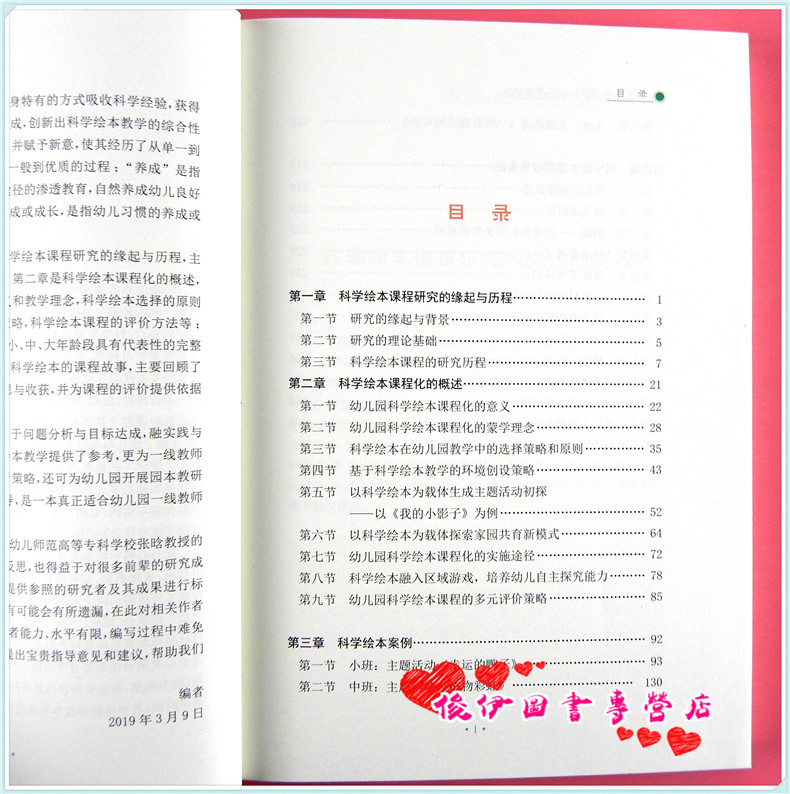 身特有的方式吸收科学经验，获得
成，创新出科学绘本教学的综合性
并赋予新意，使其经历了从单一到
一般到优质的过程；“养成”是指
径的渗透教育，自然养成幼儿良好
成或成长，是指幼儿习惯的养成或
学绘本课程研究的缘起与历程，主
第二章是科学绘本课程化的概述，
和教学理念，科学绘本选择的原则
略，科学绘本课程的评价方法等；
小、中、大年龄段具有代表性的完整
科学绘本的课程故事，主要回顾了
与收获，并为课程的评价提供依据
于问题分析与目标达成，融实践与
本教学提供了参考，更为一线教师
策略，还可为幼儿园开展园本教研
，是一本真正适合幼儿园一线教师
幼儿师范高等专科学校张晗教授的
反思，也得益于对很多前辈的研究成
提供参照的研究者及其成果进行标
有可能会有所遗漏，在此对相关作者
者能力、水平有限，编写过程中难免
提出宝贵指导意见和建议，帮助我们
编者
2019 年 3 月 9 日
目 录
目 录
第一章 科学绘本课程研究的缘起与历程 1
第一节 研究的缘起与背景 3
第二节 研究的理论基础 5
第三节 科学绘本课程的研究历程 7
第二章 科学绘本课程化的概述 21
第一节 幼儿园科学绘本课程化的意义 22
第二节 幼儿园科学绘本课程化的蒙学理念 28
第三节 科学绘本在幼儿园教学中的选择策略和原则 35
第四节 基于科学绘本教学的环境创设策略 43
第五节 以科学绘本为载体生成主题活动初探
——以《我的小影子》为例 52
第六节 以科学绘本为载体探索家园共育新模式 64
第七节 幼儿园科学绘本课程化的实施途径 72
第八节 科学绘本融入区域游戏，培养幼儿自主探究能力 78
第九节 幼儿园科学绘本课程的多元评价策略 85
第三章 科学绘本案例 92
第一节 小班：主题活动《幸运的鸭子》 93
第二节 中班：主 物彩 130
俊伊圖書專營店
· 1 ·